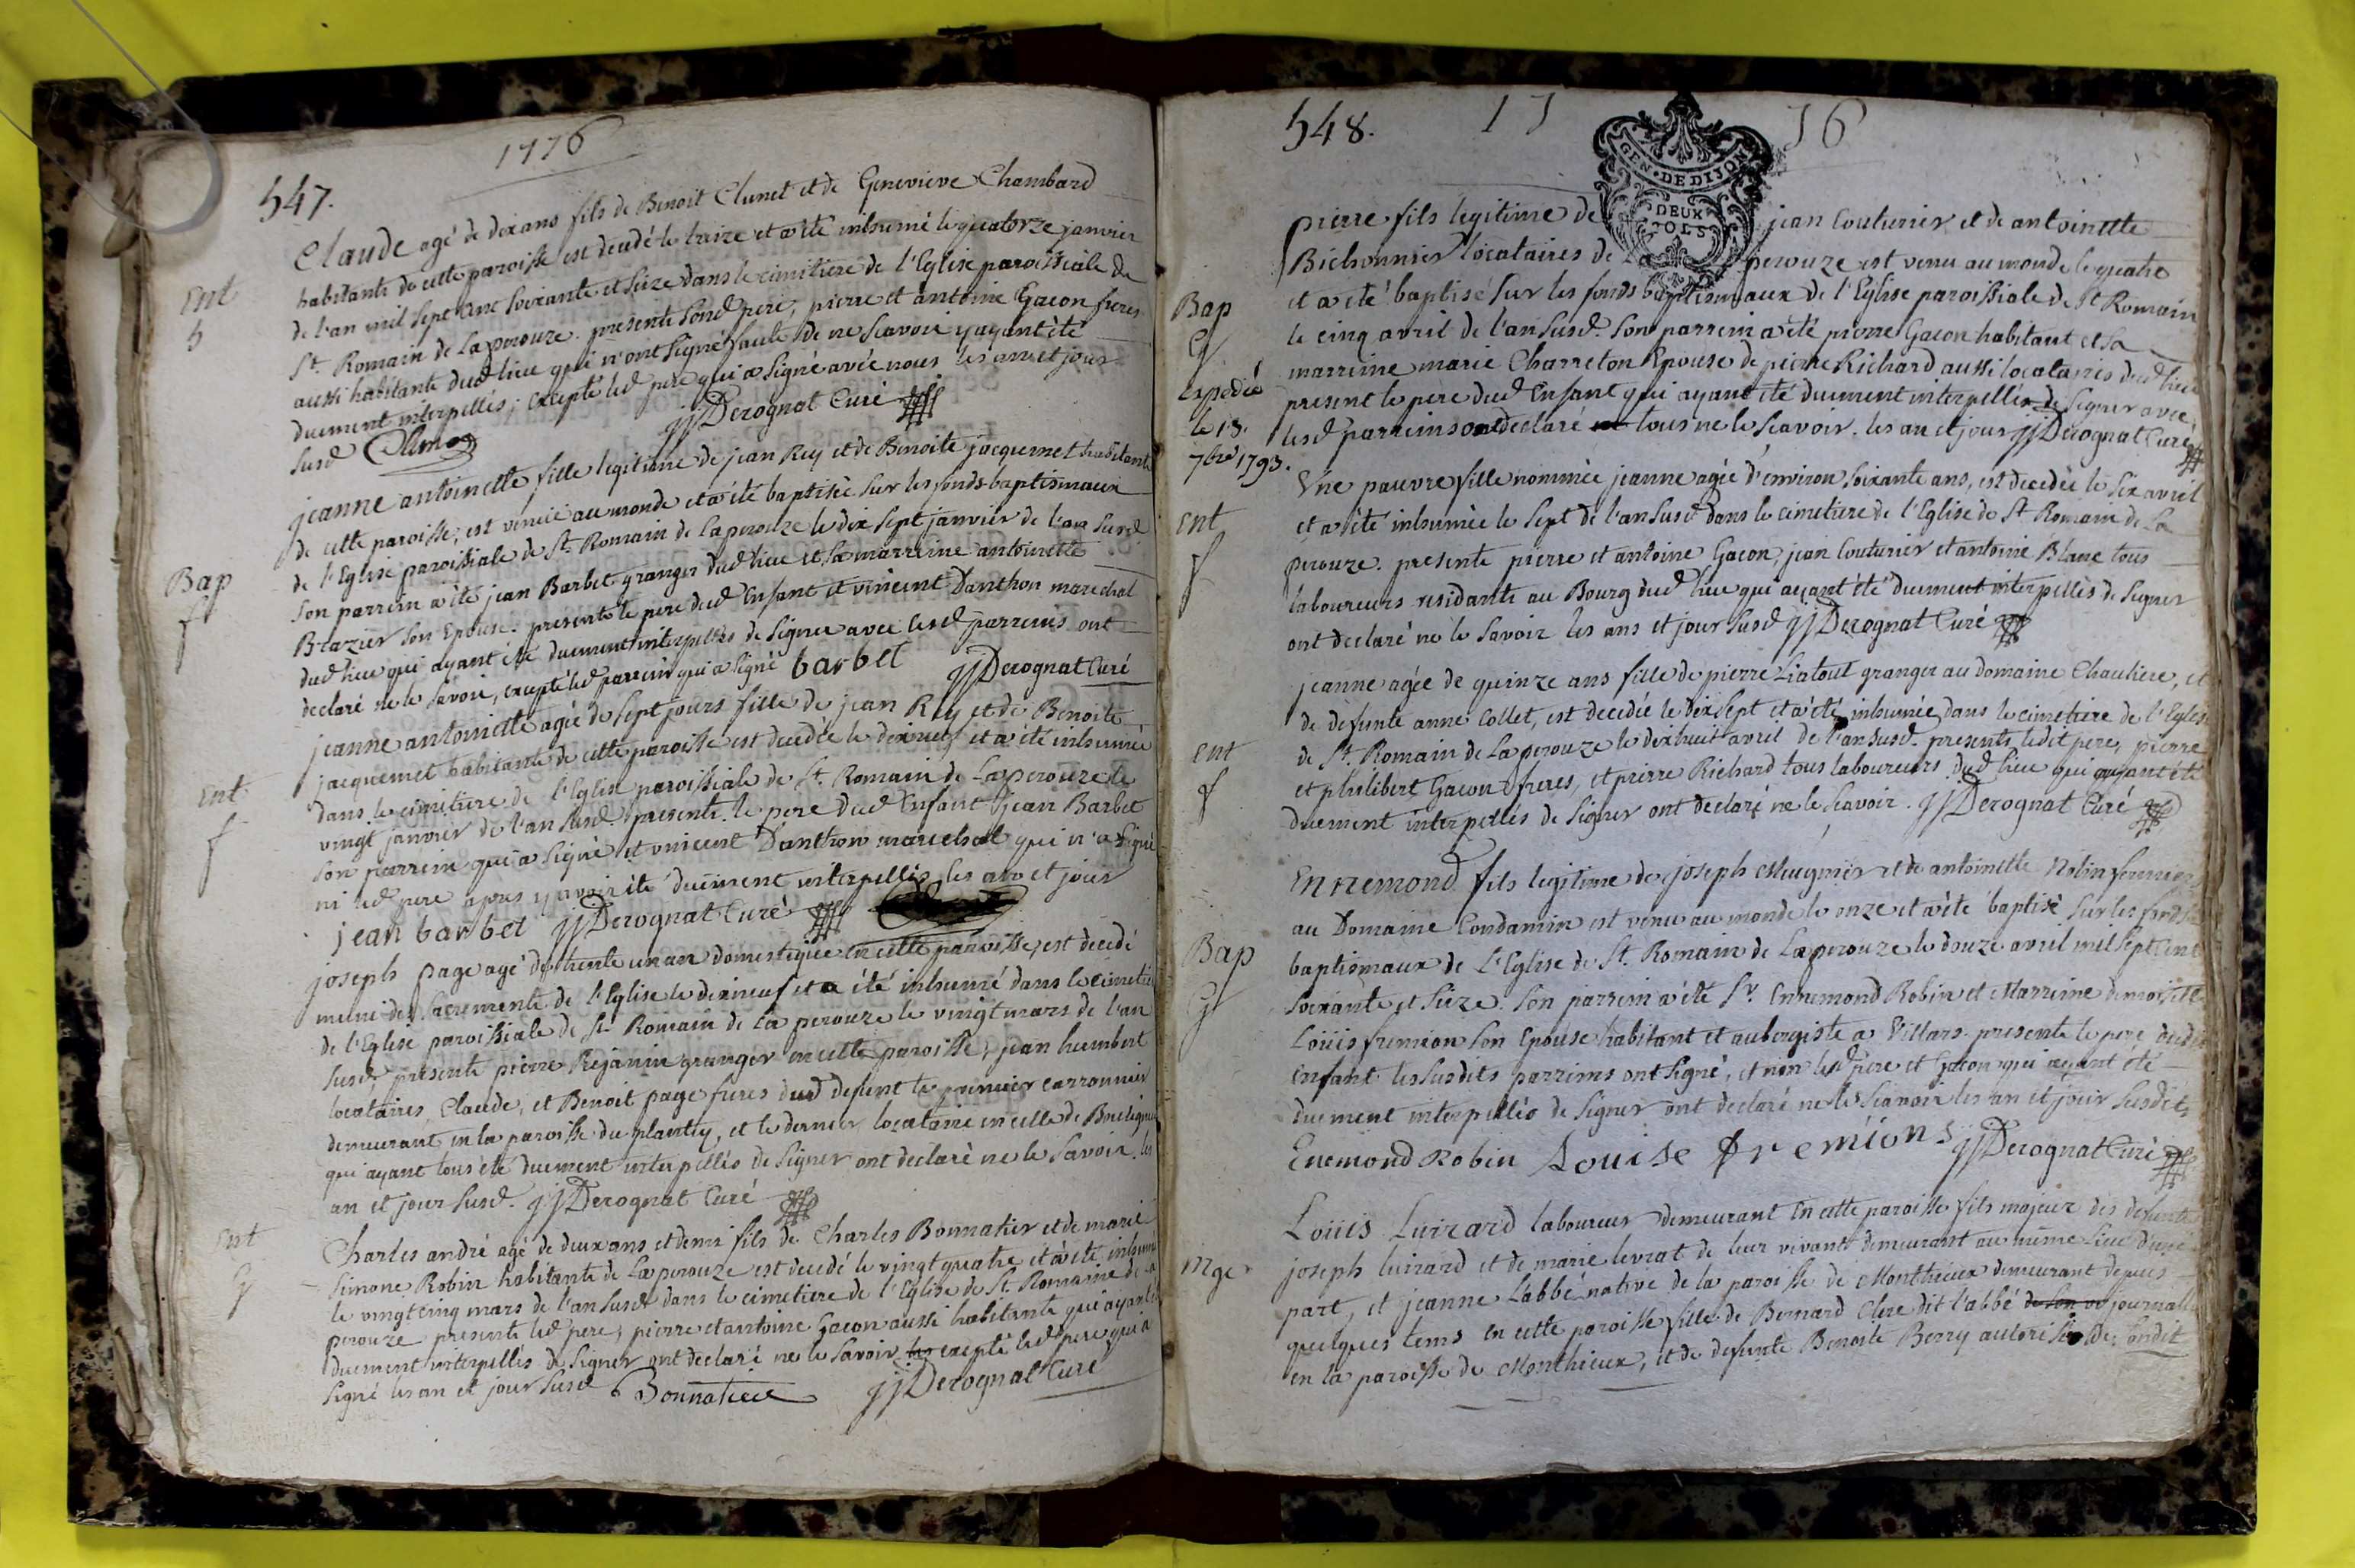 1776
547.
Claude agé de dix ans fils de Benoit Clunet et de Genevieve Chambard
habitants de cette paroisse est decedé le traize et a été inhumé le quatorze janvier
de l'an mil sept cent soixante et seize dans le cimitiere de l'Eglise paroissiale de
St. Romain de Laperouze. presents sond pere, pierre et antoine Gacon freres
aussi habitants dud lieu qui n'ont signé faute de ne scavoir y ayant été
duement interpellés, excepté led pere qui a signé avec nous les an et jour
susd Clunet jj Derognat Curé
Ent
jeanne antoinette fille legitime de jean Rey et de Benoite jacquemet habitants
de cette paroisse, est venuë au monde et a été baptisée sur les fonds baptismaux
de l'Eglise paroissiale de St. Romain de Laperouze le dix sept janvier de l'an susd
son parrein a été jean Barbet granger dud lieu et sa marreine antoinette
Brazier son Epouse. presents le pere dud Enfant et vincent Danthon marechal
dud lieu qui ayant été duement interpellés de signer avec lesd parreins ont
declaré ne le savoir, excepté led parrein qui a signé barbet jj Derognat Curé
Bap
f
jeanne antoinette agée de sept jours fille de jean Rey et de Benoite
jacquemet habitants de cette paroisse est decedée le dixneuf et a été inhumée
dans le cimitiere de l'Eglise paroissiale de St. Romain de Laperouze le
vingt janvier de l'an susd. presents le pere dud Enfant jean Barbet
son parrein qui a signé et vincent Danthon marechal qui n'a signé
ni led pere apres y avoir été duement interpellés les an et jour
jean barbet jj Derognat Curé
Ent
f
joseph page agé de trente un an domestique en cette paroisse, est decedé
muni des sacrements de l'Eglise le dixneuf et a été inhumé dans le cimetiere
de l'Eglise paroissiale de St Romain de La perouze le vingt mars de l'an
susd. presents pierre Rejanin granger en cette paroisse, jean humbert
locataires, Claude, et Benoit page freres dud defunt le premier carronnier
demeurant en la paroisse du plantey, et le dernier locataire en celle de
qui ayant tous été duement interpellés de signer ont declaré ne le savoir. les
an et jour susd. jj Derognat Curé
Ent
G
Charles andré agé de deux ans et demi fils de Charles Bonnatier et de marie
simone Robin habitants de Laperouze est decedé le vingt quatre et a été inhumé
le vingt cinq mars de l'an susd dans le cimetiere de l'Eglise de St. Romain de La
perouze presents led pere, pierre et antoine Gacon aussi habitants qui ayant été
duement interpellés de signer ont declaré ne le savoir excepté led pere qui a
signé les an et jour susd Bonnatier jj Derognat Curé
548. 1776
GEN. DE DIJON
DEUX
SOLS
pierre fils legitime de jean Couturier et de antoinette
Bichonnier locataires de La perouze est venu au monde le quatre
et a été baptisé sur les fonds baptismaux de l'Eglise paroissiale de St Romain
le cinq avril de l'an susd. son parrein a été pierre Gacon habitant et sa
marreine marie Charreton Epouse de pierre Richard aussi locataires dud lieu
present le pere dud Enfant qui ayant été duement interpellés de signer avec
lesd parreins ont declaré tous ne le scavoir. les an et jour jj Derognat Curé
Bap
G
Expedié
le 13.
7bre 1793.
Une pauvre fille nommée jeanne agée d'environ soixante ans, est decedée le six avril
et a été inhumée le sept de l'an susd dans le cimetiere de l'Eglise de St Romain de La
perouze. presents pierre et antoine Gacon, jean Couturier et antoine Blanc tous
laboureurs residants au Bourg dud lieu qui ayant été duement interpellés de signer
ont declaré ne le savoir les ans et jour susd jj Derognat Curé
ent
f
jeanne agée de quinze ans fille de pierre Liatout granger au domaine Chauliere, et
de defunte anne Collet, est decedée le dix sept et a été inhumée dans le cimetiere de l'Eglise
de St. Romain de Laperouze le dixhuit avril de l'an susd. presents ledit pere, pierre
et philibert Gacon freres, et pierre Richard tous laboureurs dud lieu qui ayant été
duement interpellés de signer ont declaré ne le scavoir. jj Derognat Curé
ent
f
Ennemond fils legitime de joseph Meugnier et de antoinette Robin fermier
au Domaine Condamin est venu au monde le onze et a été baptisé sur les fonds
baptismaux de l'Eglise de St. Romain de Laperouze le douze avril mil sept cent
soixante et seize. son parrein a été Sr. Ennemond Robin et Marreine demoiselle
Loüise fremion son Epouse habitant et aubergiste a Villars. presents le pere dudit
enfant les susdits parreins ont signé, et non led pere et Gacon qui ayant été
duement interpellés de signer ont declaré ne le scavoir les an et jour susdits
Enemond Robin Louise fremions jj Derognat Curé
Bap
G
Loüis Luizard laboureur demeurant En cette paroisse fils majeur des defunts
joseph luizard et de marie levrat de leur vivant demeurant au même lieu d'une
part, et jeanne Labbé native de la paroisse de Monthieux demeurant depuis
quelques tems en cette paroisse fille de Bernard Clerc dit l'abbé de son vi journalier
en la paroisse de Monthieux, et de defunte Benoite Berry autorisée de sondit
Mge